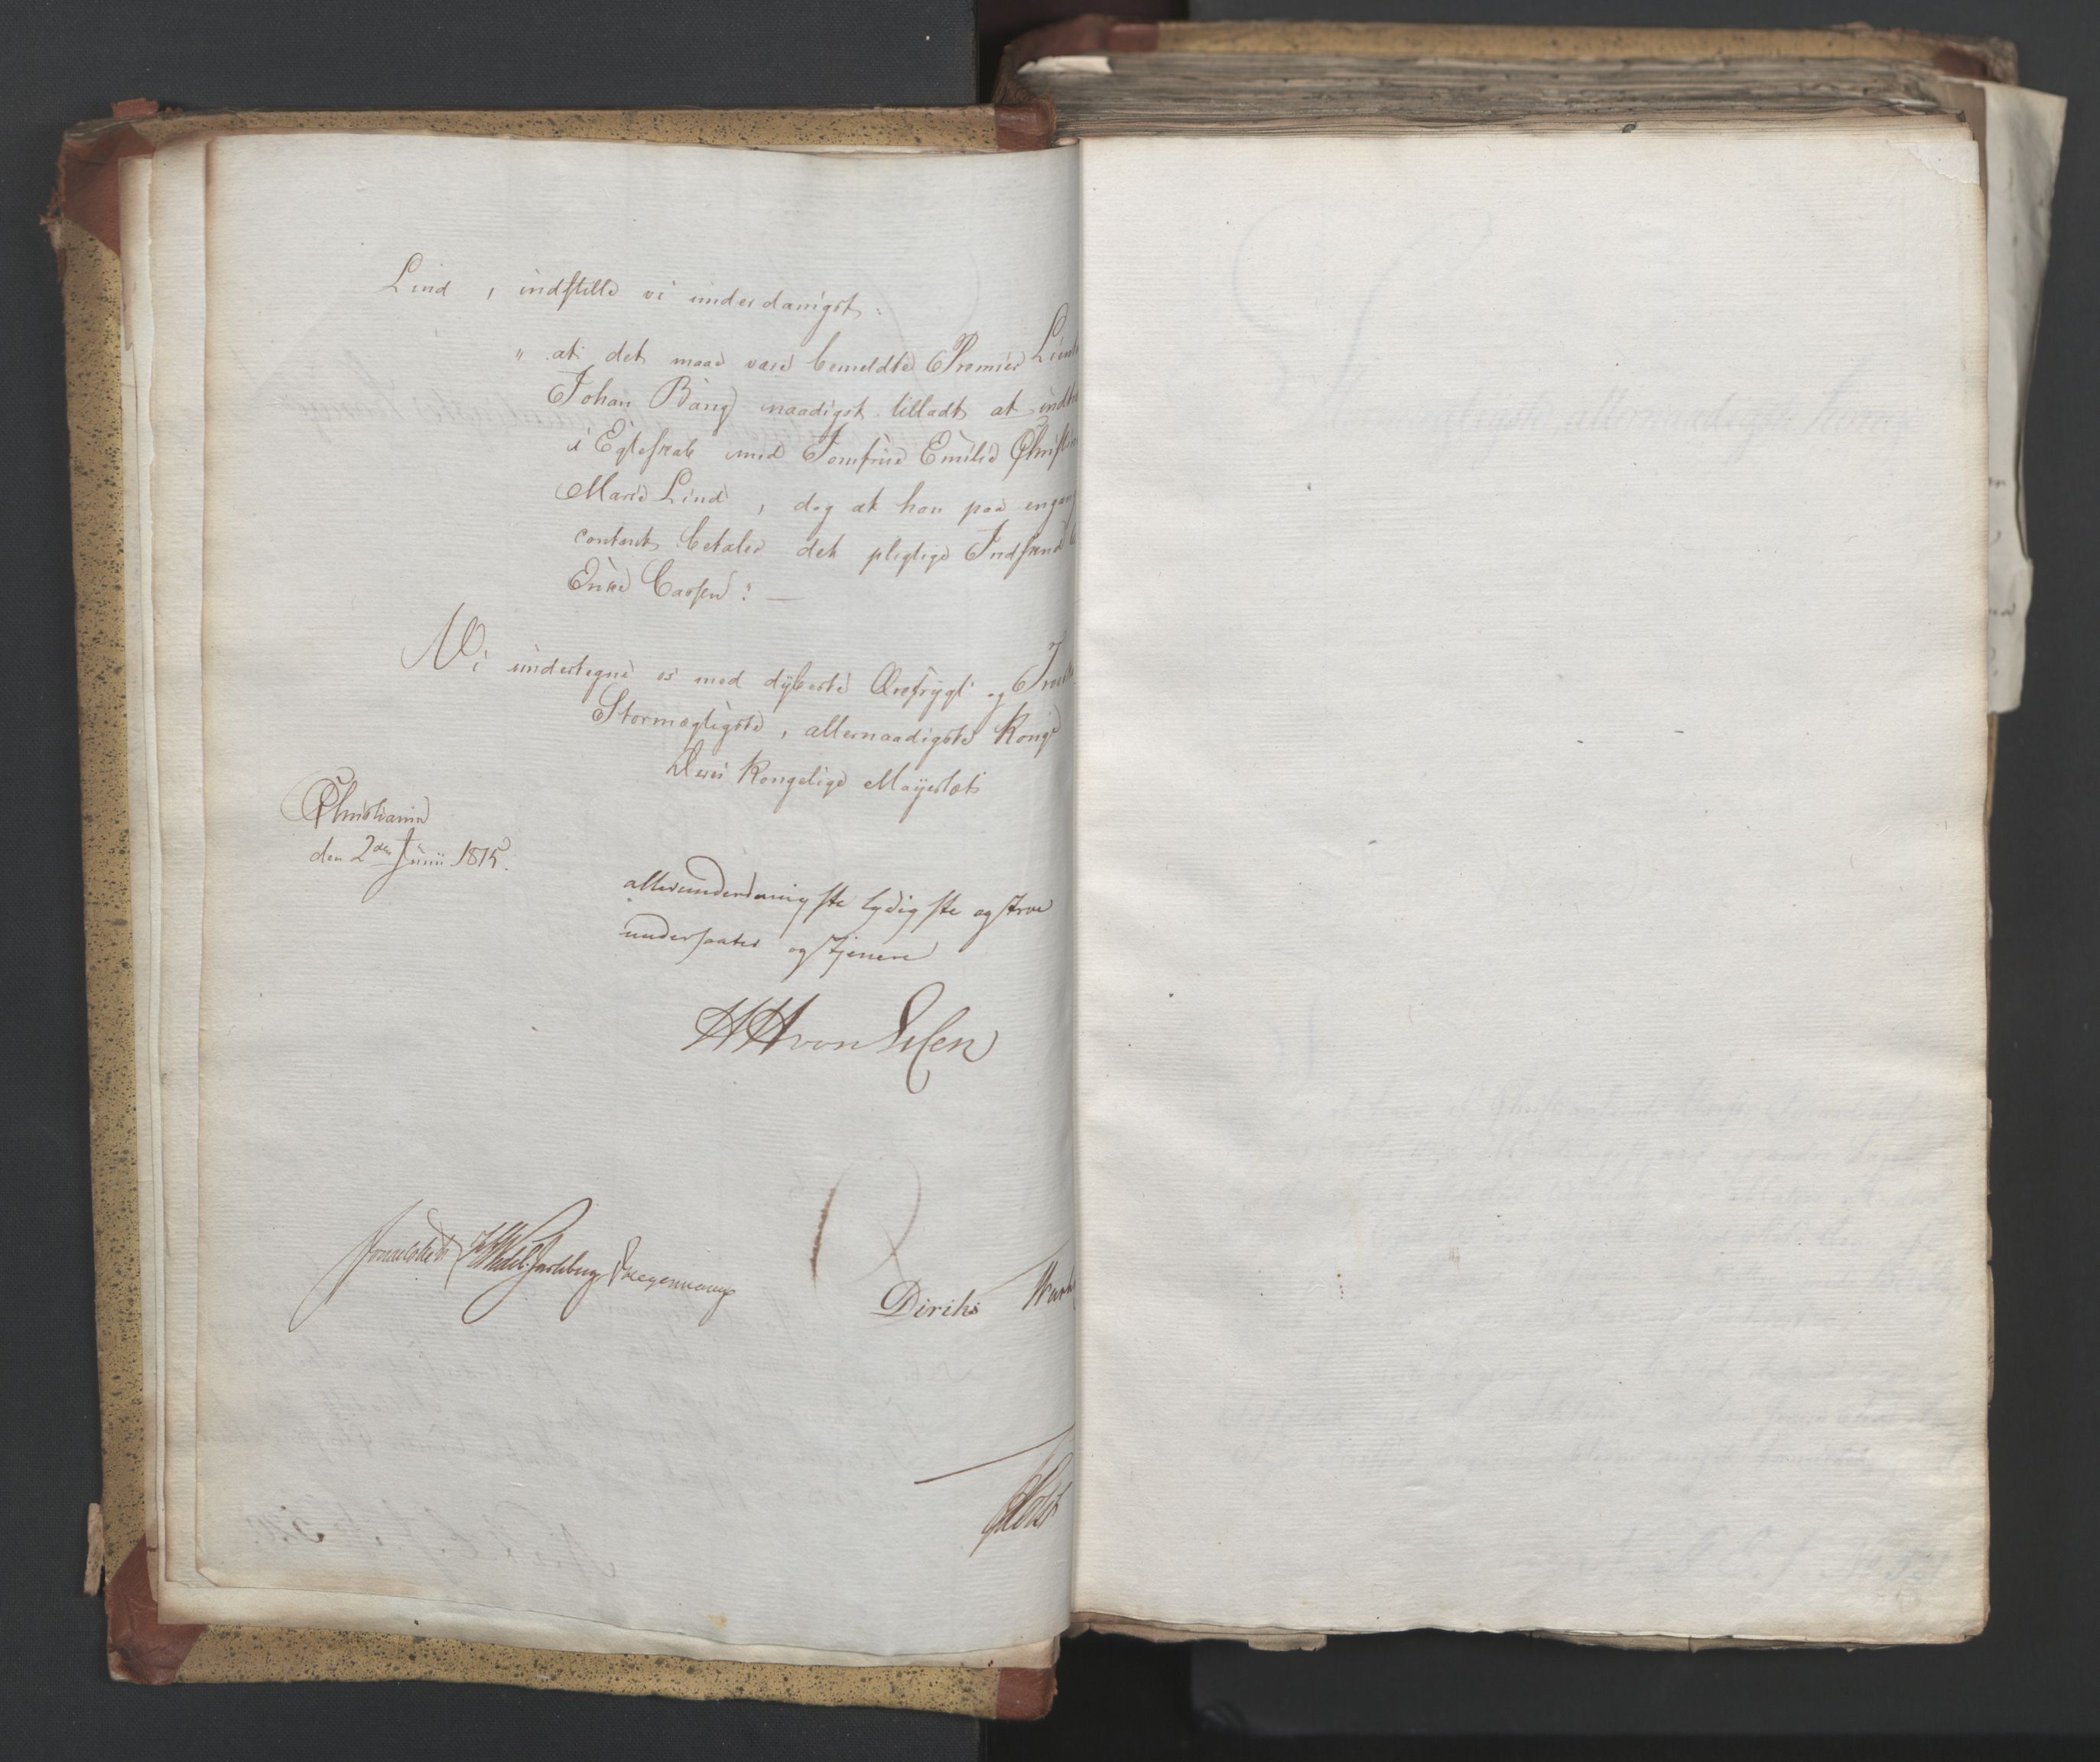 Lind, indstille vi underdanigst:
" at det maae være bemeldte Premier Lieute
Johan Bang naadigst tilladt at indtræ
i Egteskab med Jomfrue Emilie Christine
Marie Lind, dog at han paa engang
contant betaler det pligtige Indskud
Enke Cassen: —
Vi undertegne os med dybeste Ærefrygt og Troe
Stormægtigste, allernaadigste Konge
Deres Kongelige Mayestæts
Christiania
den 2den Junii 1815.
allerunderdanigste lydigste og troe
undersaatter og tjenere
HH von Essen
Sommerhielm HWedel Jarlsberg Kreÿenberg
Diriks
Holst